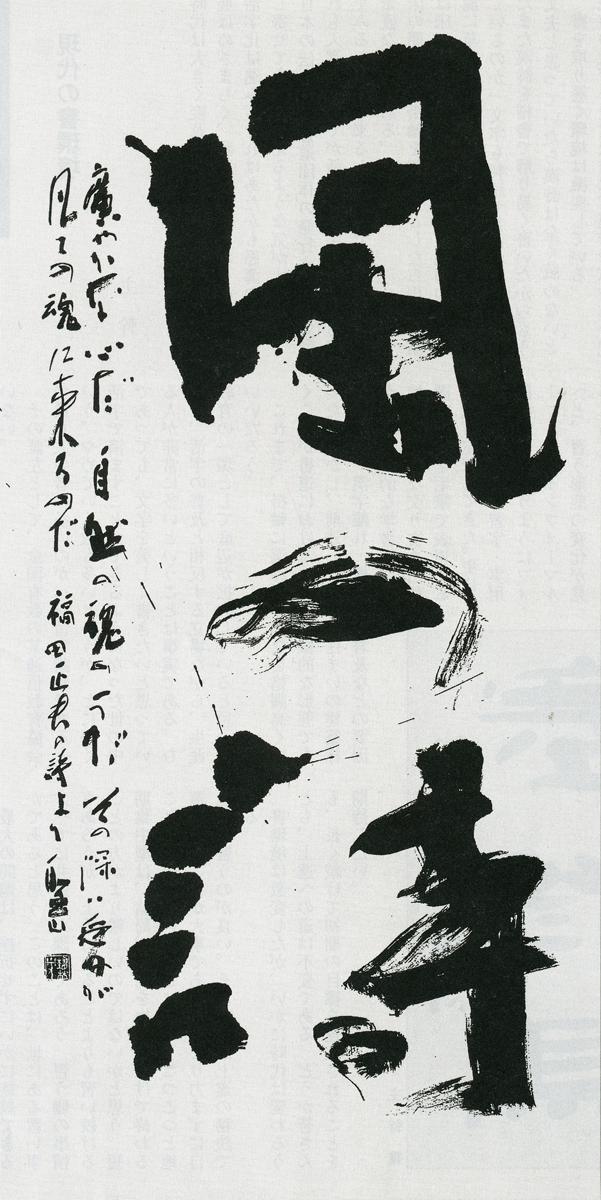 風の詩
廣やかな心だ 自然の魂のうただ その深い愛が
凡ての魂に来るのだ 福田正夫の詩より